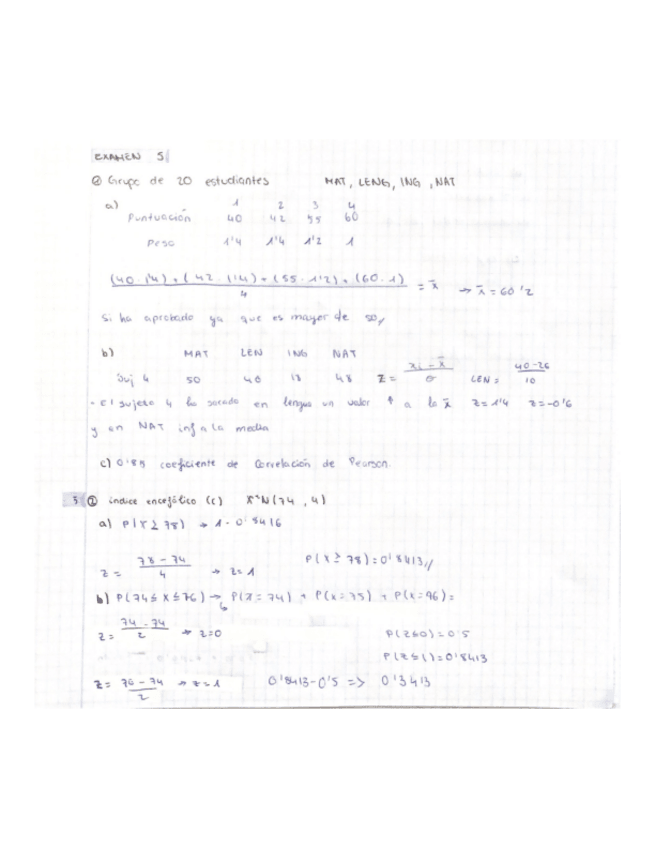 EXAMEN 5
② Grupo de 20 estudiantes MAT, LENG, ING, NAT
a) 1 2 3 4
Puntuación 40 42 55 60
Peso 1'4 1'4 1'2 1
(40·1'4) + (42·1'4) + (55·1'2) + (60·1) / 4 = x̄ → x̄ = 60'2
Si ha aprobado ya que es mayor de 50
b) MAT LEN ING NAT
Suj 4 50 40 18 48 Z = xi - x̄ / σ LEN = 40-26 / 10
- El sujeto 4 ha sacado en lengua un valor ↑ a la x̄ Z=1'4 Z=-0'6
y en NAT inf a la media
c) 0'85 coeficiente de Correlación de Pearson
3 ① índice encefálico (c) X~N(74,4)
a) P(X≥78) → 1-0'8416
Z = 78-74 / 4 → Z=1 P(X≥78)=0'8413//
b) P(74≤X≤76) → P(X=74) + P(X=75) + P(X=76)=
Z = 74-74 / 2 → Z=0 P(Z≤0)=0'5
P(Z≤1)=0'8413
Z = 76-74 / 2 → Z=1 0'8413-0'5 => 0'3413